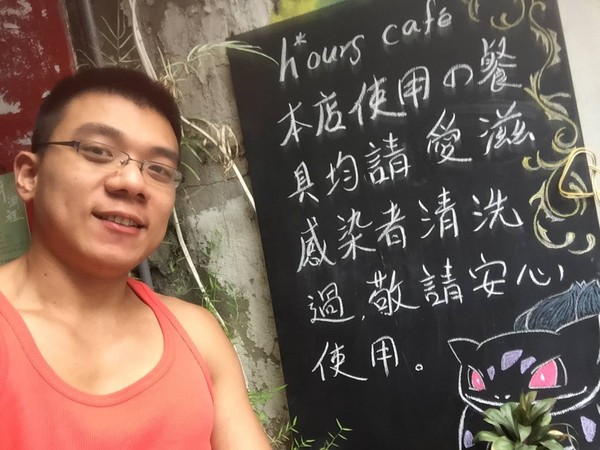 h*ours café
本店使用の餐
具均請愛滋
感染者清洗
過，敬請安心
使用。